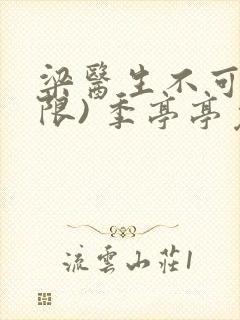 梁醫生不可
限) 季亭亭
流雲山莊1